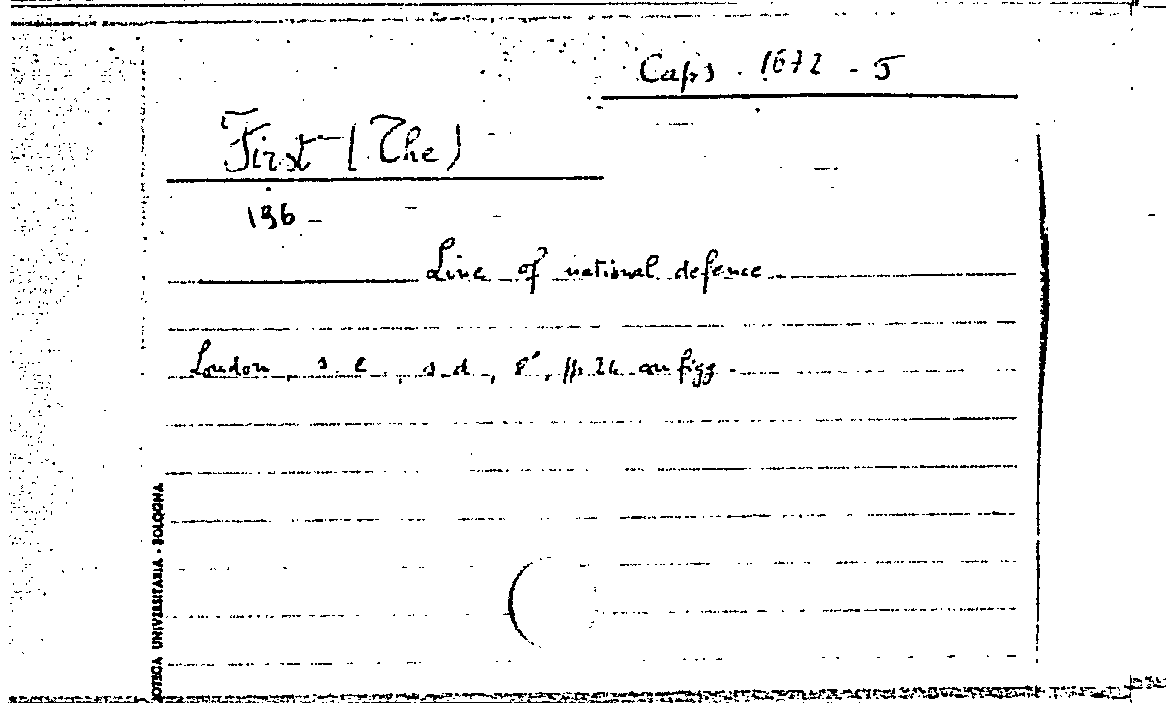 Caps. 1672 - J
First (The)
196 -
Line of national defence
London, s. e., s. d., 8°, pp. 24 con figg -
OTECA UNIVERSITARIA - BOLOGNA